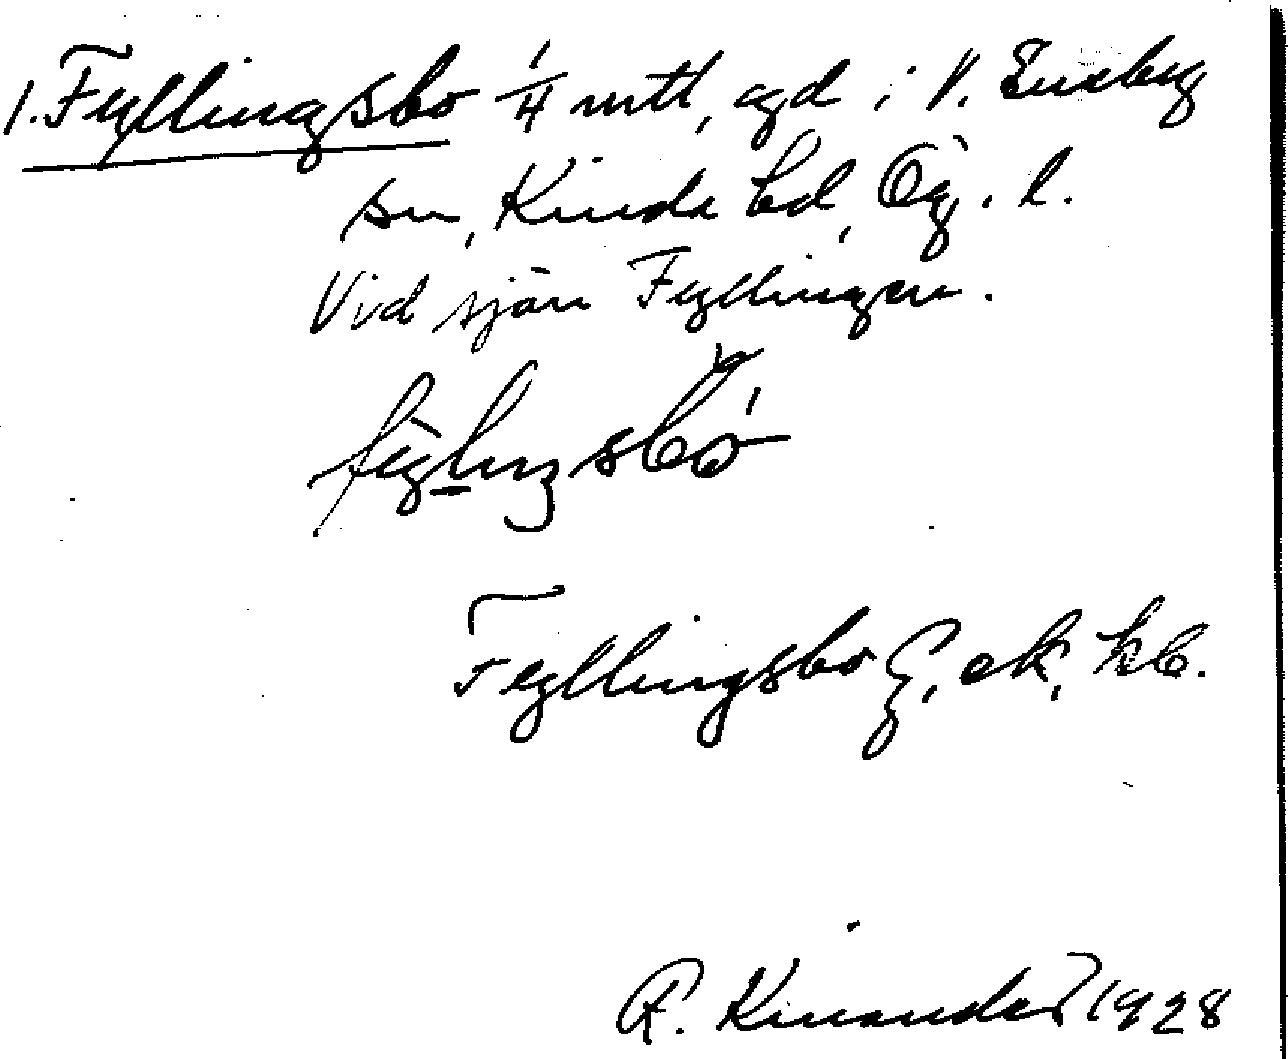 1. Fyllingsbo 1/4 mtl, agd i V. Eneby
sn, Kinda hd, Ög. l.
Vid sjön Fyllingen.
Fyllingsbo G, ek, kb.
R. Kinander 1928